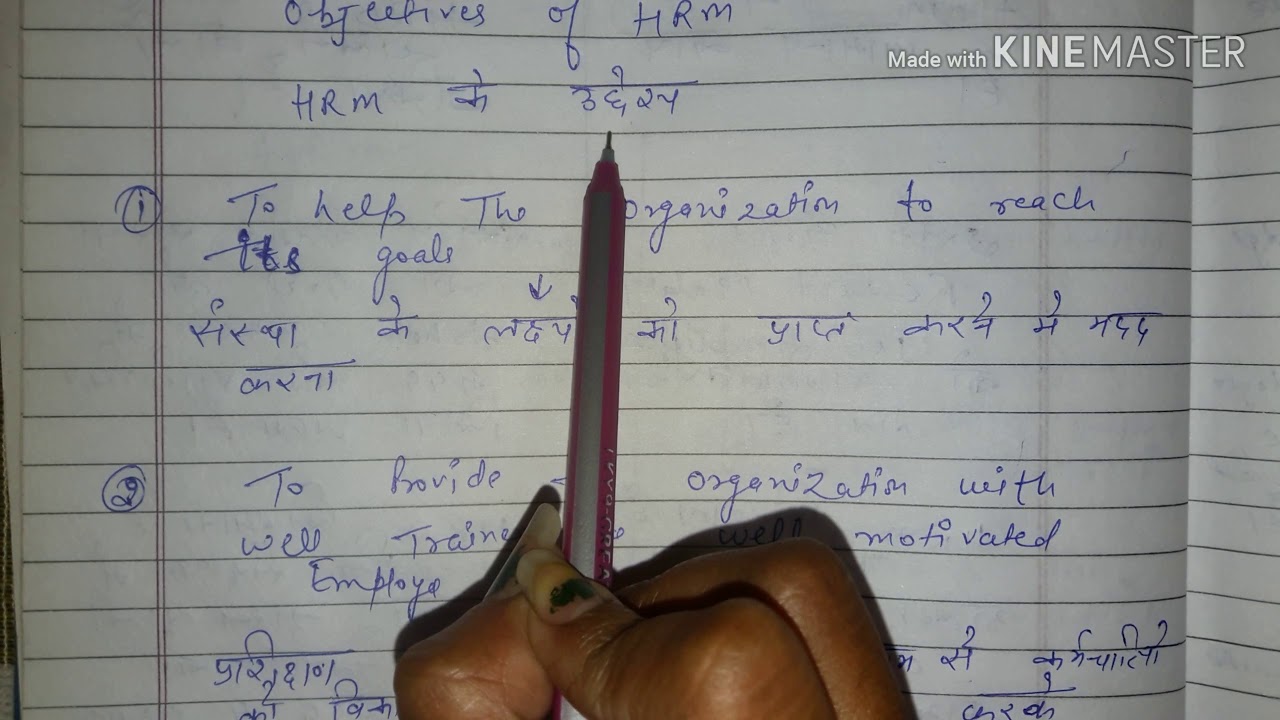 Objectives of HRM
Made with KINEMASTER
HRM के उद्देश्य
① To help The organization to reach
its goals
संस्था के लक्ष्यों को प्राप्त करने मे मदद
करना
② To Provide organization with
well Traine well motivated
Employe
प्रशिक्षण से
को करके